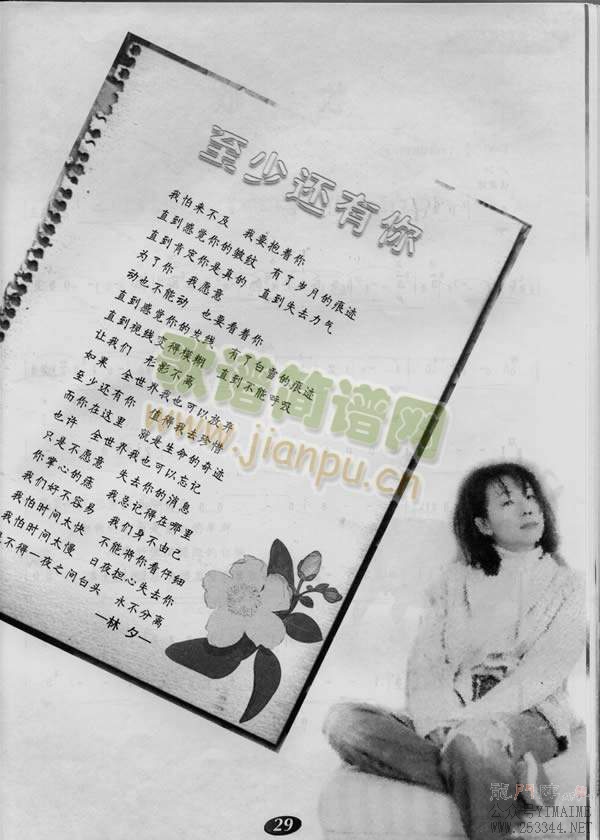 至少还有你
我怕来不及 我要抱着你
直到感觉你的皱纹 有了岁月的痕迹
直到肯定你是真的 直到失去力气
为了你 我愿意
动也不能动 也要看着你
直到感觉你的发线 有了白雪的痕迹
直到视线变得模糊 直到不能呼吸
让我们 形影不离
如果 全世界我也可以放弃
至少还有你 值得我去珍惜
而你在这里 就是生命的奇迹
也许 全世界我也可以忘记
只是不愿意 失去你的消息
你掌心的痣 我总记得在哪里
我们好不容易 我们身不由己
我怕时间太快 不能将你看仔细
我怕时间太慢 日夜担心失去你
不得一夜之间白头 永不分离
—林夕—
歌谱简谱网
www.jianpu.cn
29
公众号YIMAIME
WWW.253344.NET